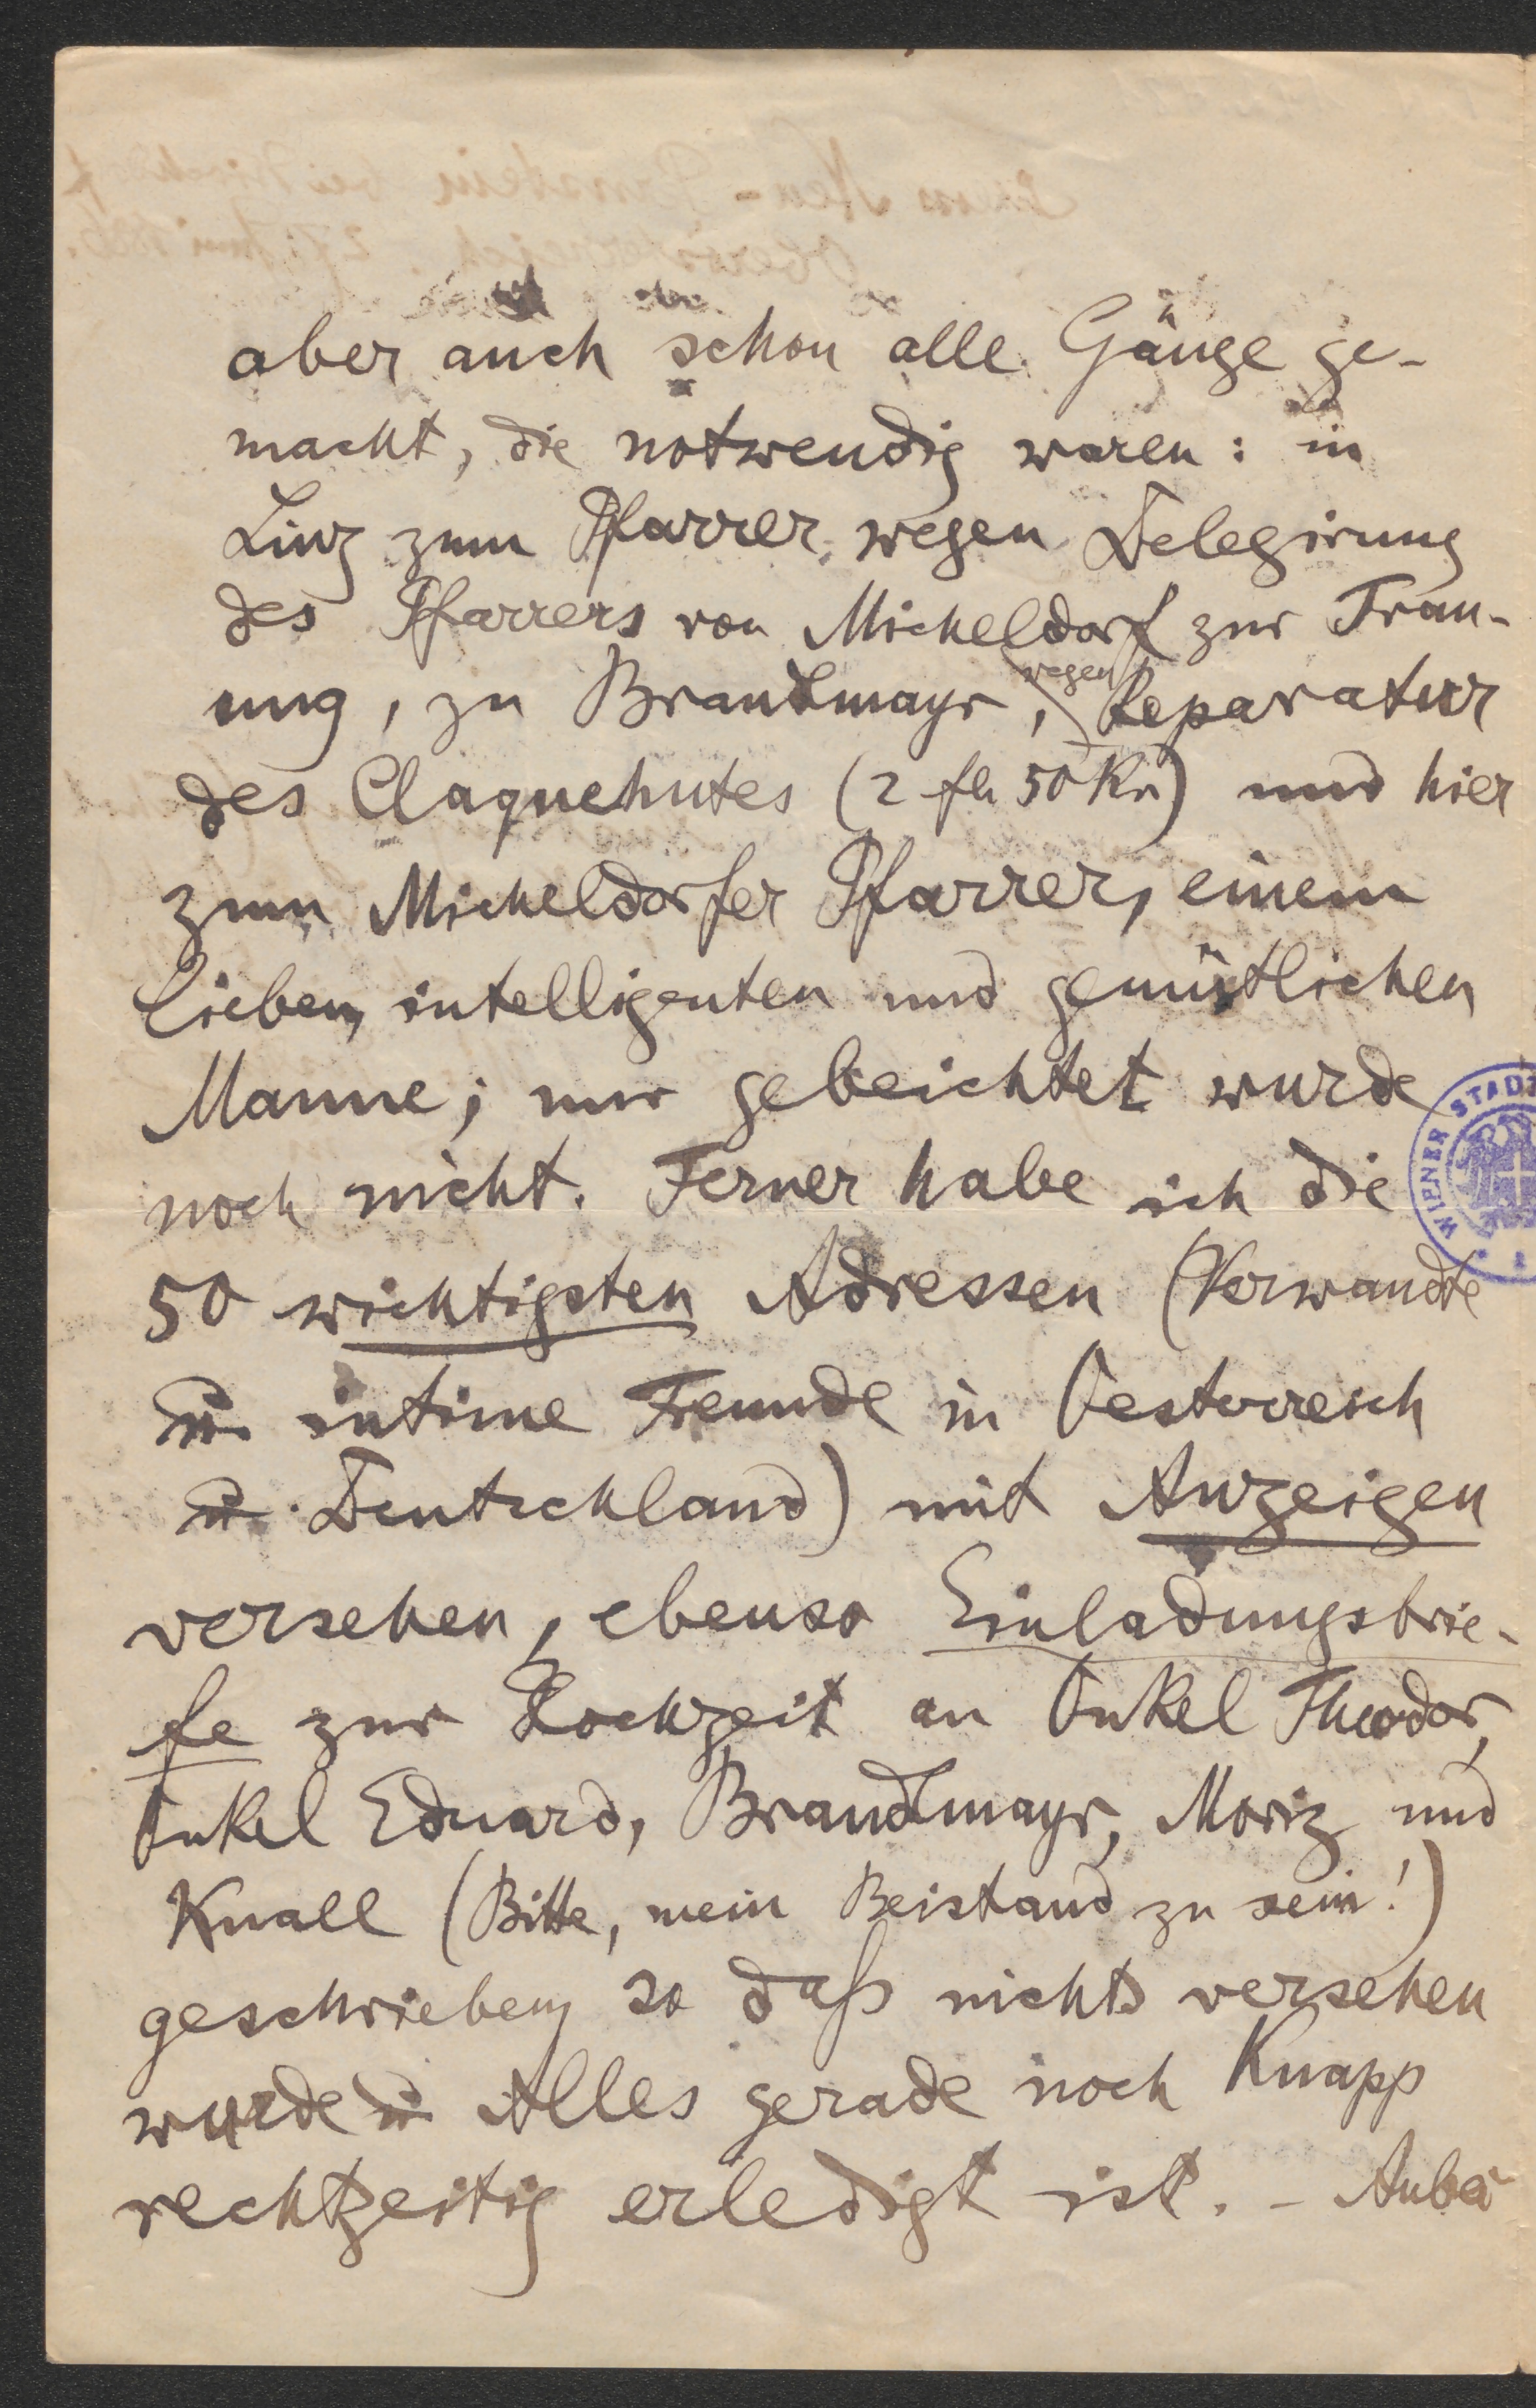 aber auch schon alle Gänge ge-
macht, die notwendig waren: in
Linz zum Pfarrer wegen Delegirung
des Pfarrers von Micheldorf zur Trau-
ung, zu Brandmayr, wegen Reparatur
des Claquehutes (2 fl. 50 Kr.) und hier
zum Micheldorfer Pfarrer, einem
lieben, intelligenten und gemütlichen
Manne; nur gebeichtet wurde
noch nicht. Ferner habe ich die
50 wichtigsten Adressen (Verwandte
u. intime Freunde in Oesterreich
u. Deutschland) mit Anzeigen
versehen, ebenso Einladungsbrie-
fe zur Hochzeit an Onkel Theodor,
Onkel Eduard, Brandmayr, Moriz und
Knall (Bitte, mein Beistand zu sein!)
geschrieben, so daß nichts versehen
wurde u. Alles gerade noch knapp
rechtzeitig erledigt ist. – Anbei
WIENER STADT